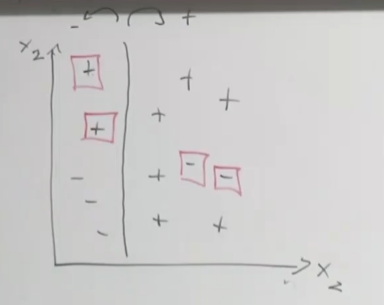 - +
x₂
+ + +
+ +
- + - -
-
- + +
x₂